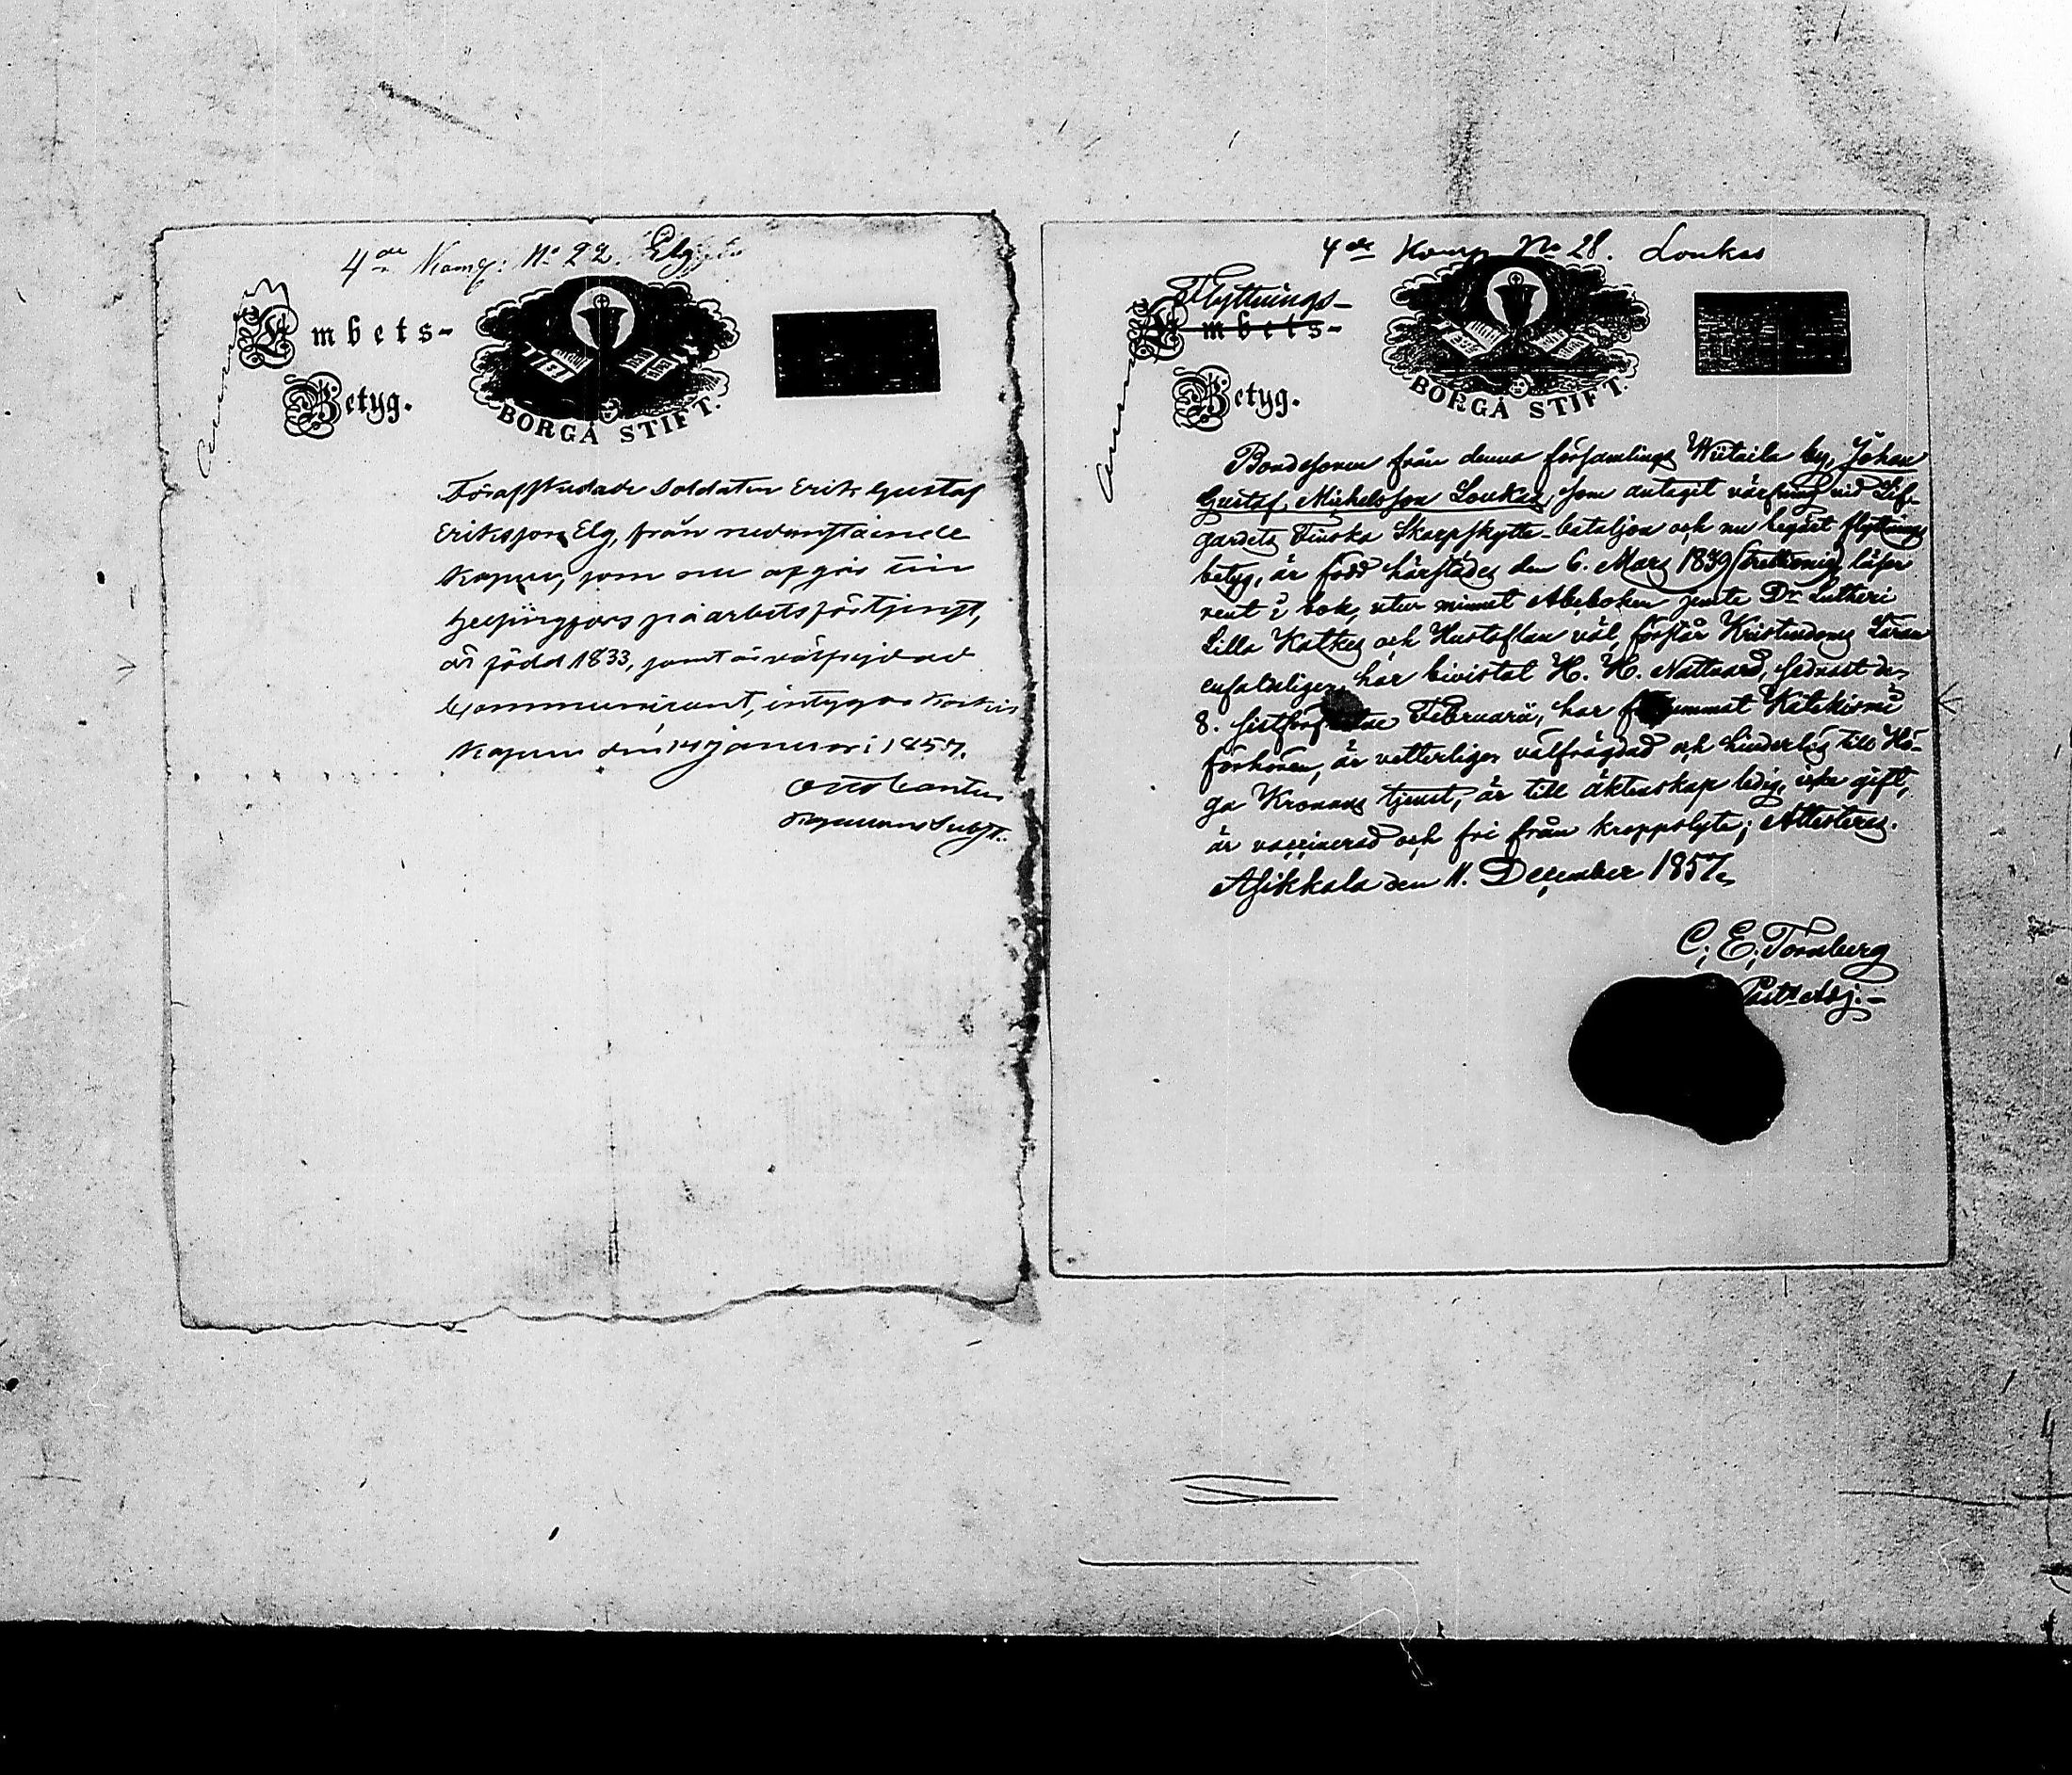 4de Komp: No 22. Elg
Embets-
Betyg.
BORGÅ STIFT.
Förafskedade Soldaten Erik Gustaf
Eriksson Elg, från nedanstående
Kapell, som nu afgår till
Helsingfors på arbetsförtjenst,
är född 1833, samt är välfrejdad
Communicant, intygar Kärkis
Kapell den 14 Januari 1857.
Kapellans Subst.
4de Komp No 28. Loukas
Flyttnings-
Embets-
Betyg.
BORGÅ STIFT.
Bondesonen från denna församlings Wiitaila by, Johan
Gustaf Michelsson Loukas, som antagit värfning vid Lif-
gardets Finska Skarpskytte-bataljon och nu begärt flyttnings
betyg, är född härstädes den 6. Mars 1839 (trettionio), läser
rent i bok, utur minnet Abeboken jemte Dr Lutheri
Lilla Katkes och Hustaflan väl, förstår Kristendoms Läran
enfaldeligen, har bivistat H. H. Nattvard, sednast den
8. sistförflutne Februarii, har försummat Katekismi
förhören, är vetterligen välfrägdad och hinderlös till Hö-
ga Kronans tjenst, är till äktenskap ledig, icke gift,
är vaccinerad och fri från kroppslyte; Attesteras.
Asikkala den 11. December 1857.
C. E. Tornberg
Past. Adj.